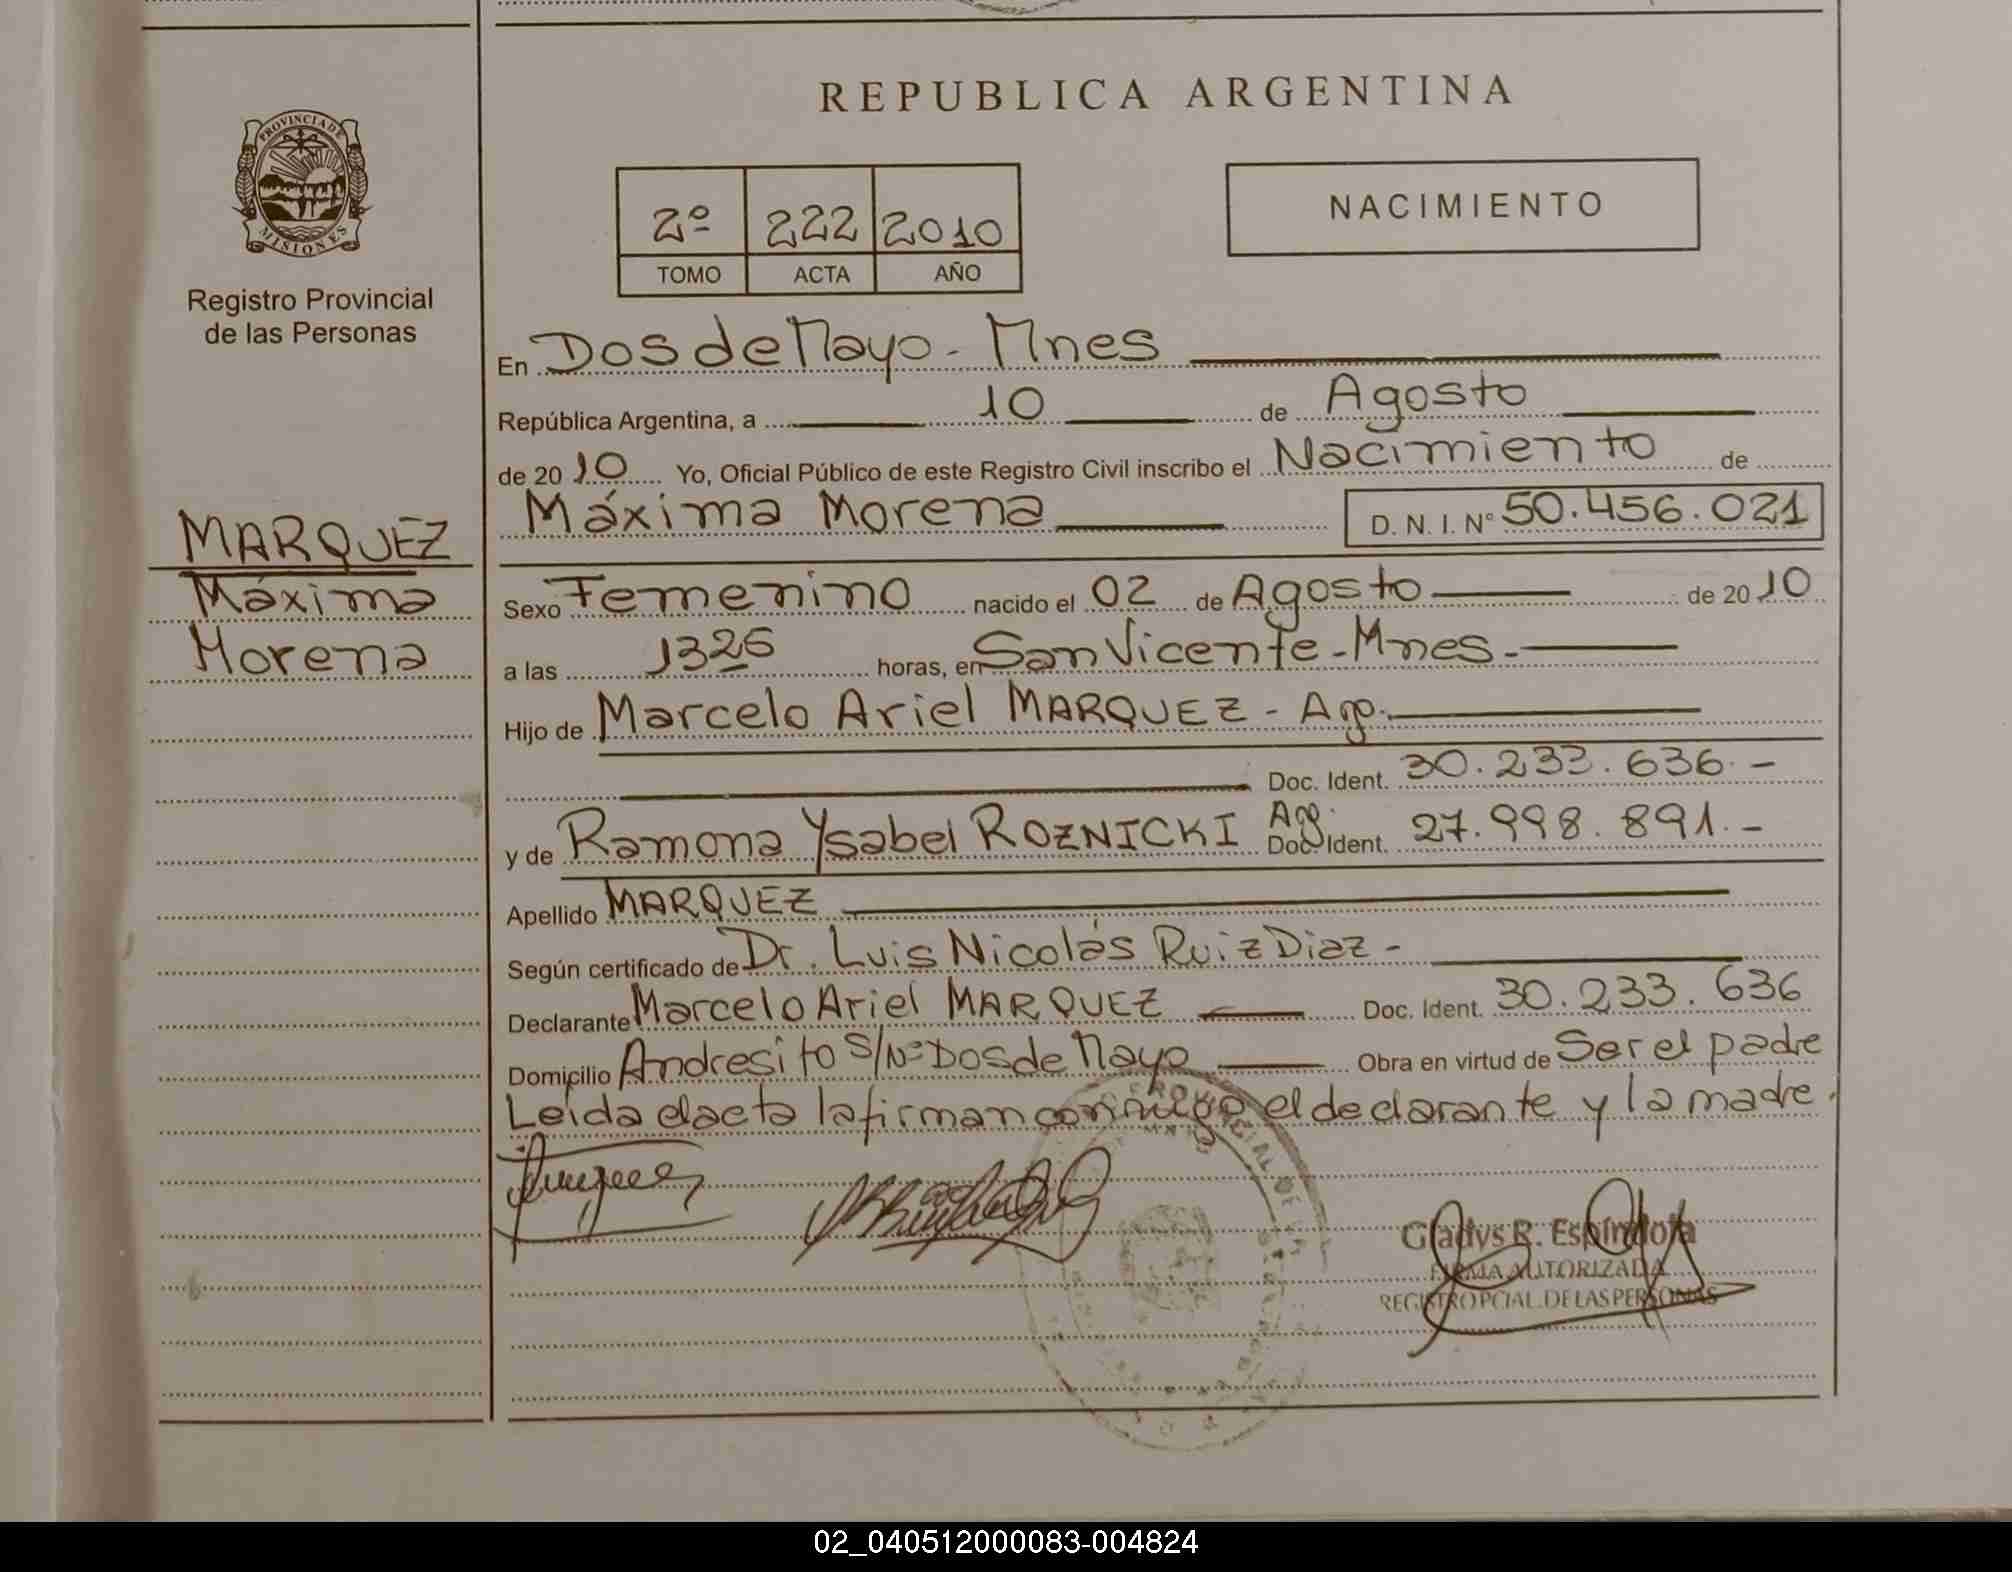 REPUBLICA ARGENTINA
PROVINCIA DE
MISIONES
Registro Provincial
de las Personas
2º 222 2010
TOMO ACTA AÑO
NACIMIENTO
En Dos de Mayo - Mnes
República Argentina, a 10 de Agosto
de 2010 Yo, Oficial Público de este Registro Civil inscribo el Nacimiento de
Máxima Morena D. N. I. Nº 50.456.021
MARQUEZ
Máxima
Morena
Sexo Femenino nacido el 02 de Agosto de 2010
a las 1325 horas, en San Vicente - Mnes -
Hijo de Marcelo Ariel MARQUEZ - Arg.
Doc. Ident. 30.233.636.-
y de Ramona Ysabel ROZNICKI Arg. Doc. Ident. 27.998.891.-
Apellido MARQUEZ
Según certificado de Dr. Luis Nicolás Ruiz Diaz -
Declarante Marcelo Ariel MARQUEZ Doc. Ident. 30.233.636
Domicilio Andresito S/Nº Dos de Mayo Obra en virtud de Ser el padre
Leída el acta la firman conmigo el declarante y la madre.
Gladys R. Espíndola
FIRMA AUTORIZADA
REGISTRO PCIAL. DE LAS PERSONAS
02_040512000083-004824